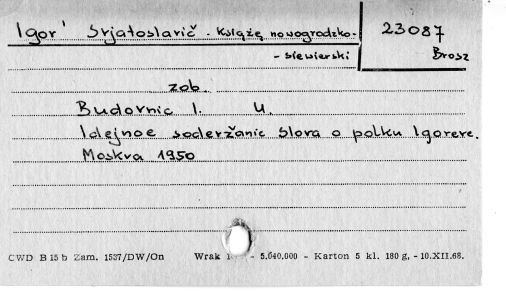 Igor' Svjatoslavič - Książę nowogrodzko-
- siewierski
23087
Brosz
zob.
Budovnic I. U.
Idejnoe soderžanie Slova o polku Igoreve.
Moskva 1950
CWD B 15 b Zam. 1537/DW/On Wrak - 5.640.000 - Karton 5 kl. 180 g, - 10.XII.68.